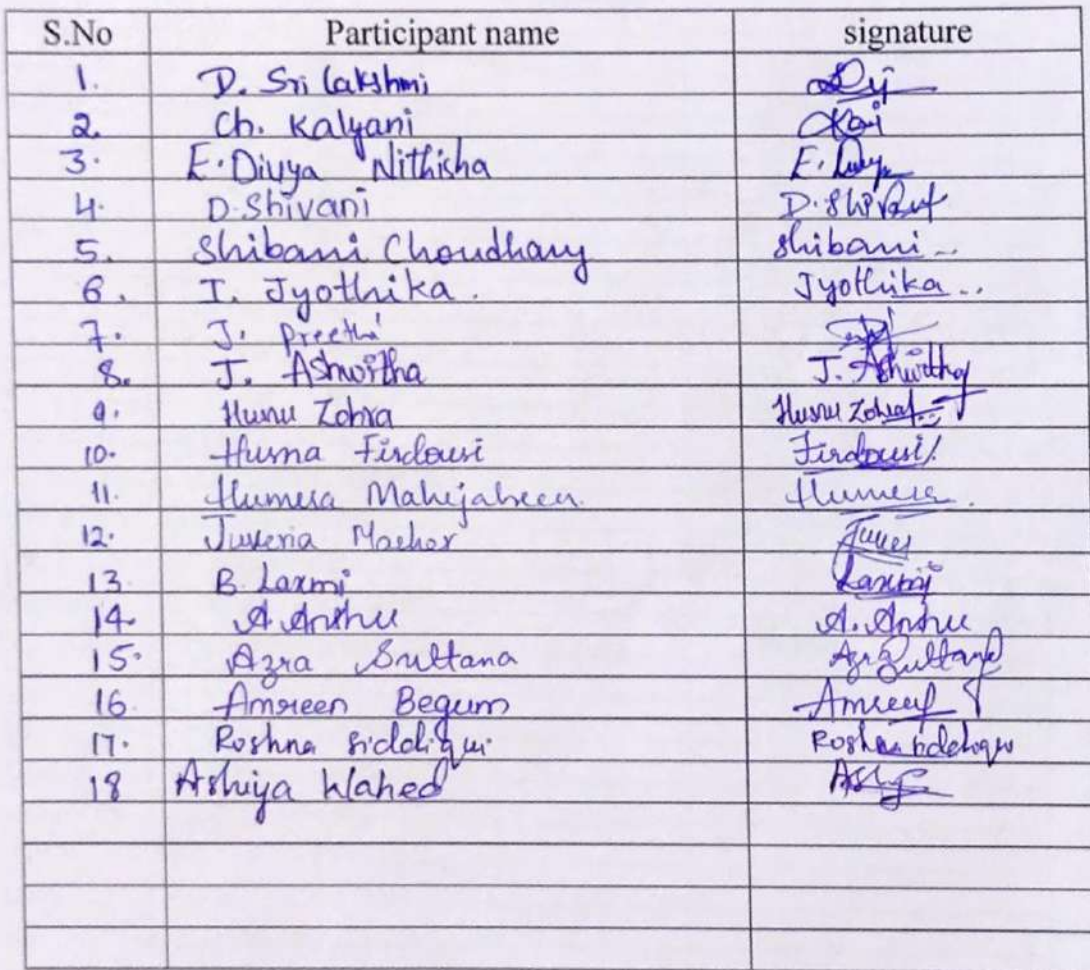 S.No Participant name signature
1. D. Sri Lakshmi
2. Ch. Kalyani
3. E. Divya Nithisha E. Divya
4. D. Shivani D. Shivani
5. Shibani Choudhary Shibani
6. I. Jyothika. Jyothika..
7. J. Preethi
8. J. Ashwitha J. Ashwitha
9. Husnu Zohra Husnu Zohra
10. Husna Firdousi Firdousi
11. Humera Mahejabeen. Humera.
12. Juveria
13. B. Laxmi Laxmi
14. A. Anshu A. Anshu
15. Azra Sultana Azra Sultana
16. Amreen Begum Amreen
17. Roshna Siddiqui Roshna Siddiqui
18 Ashiya Wahed